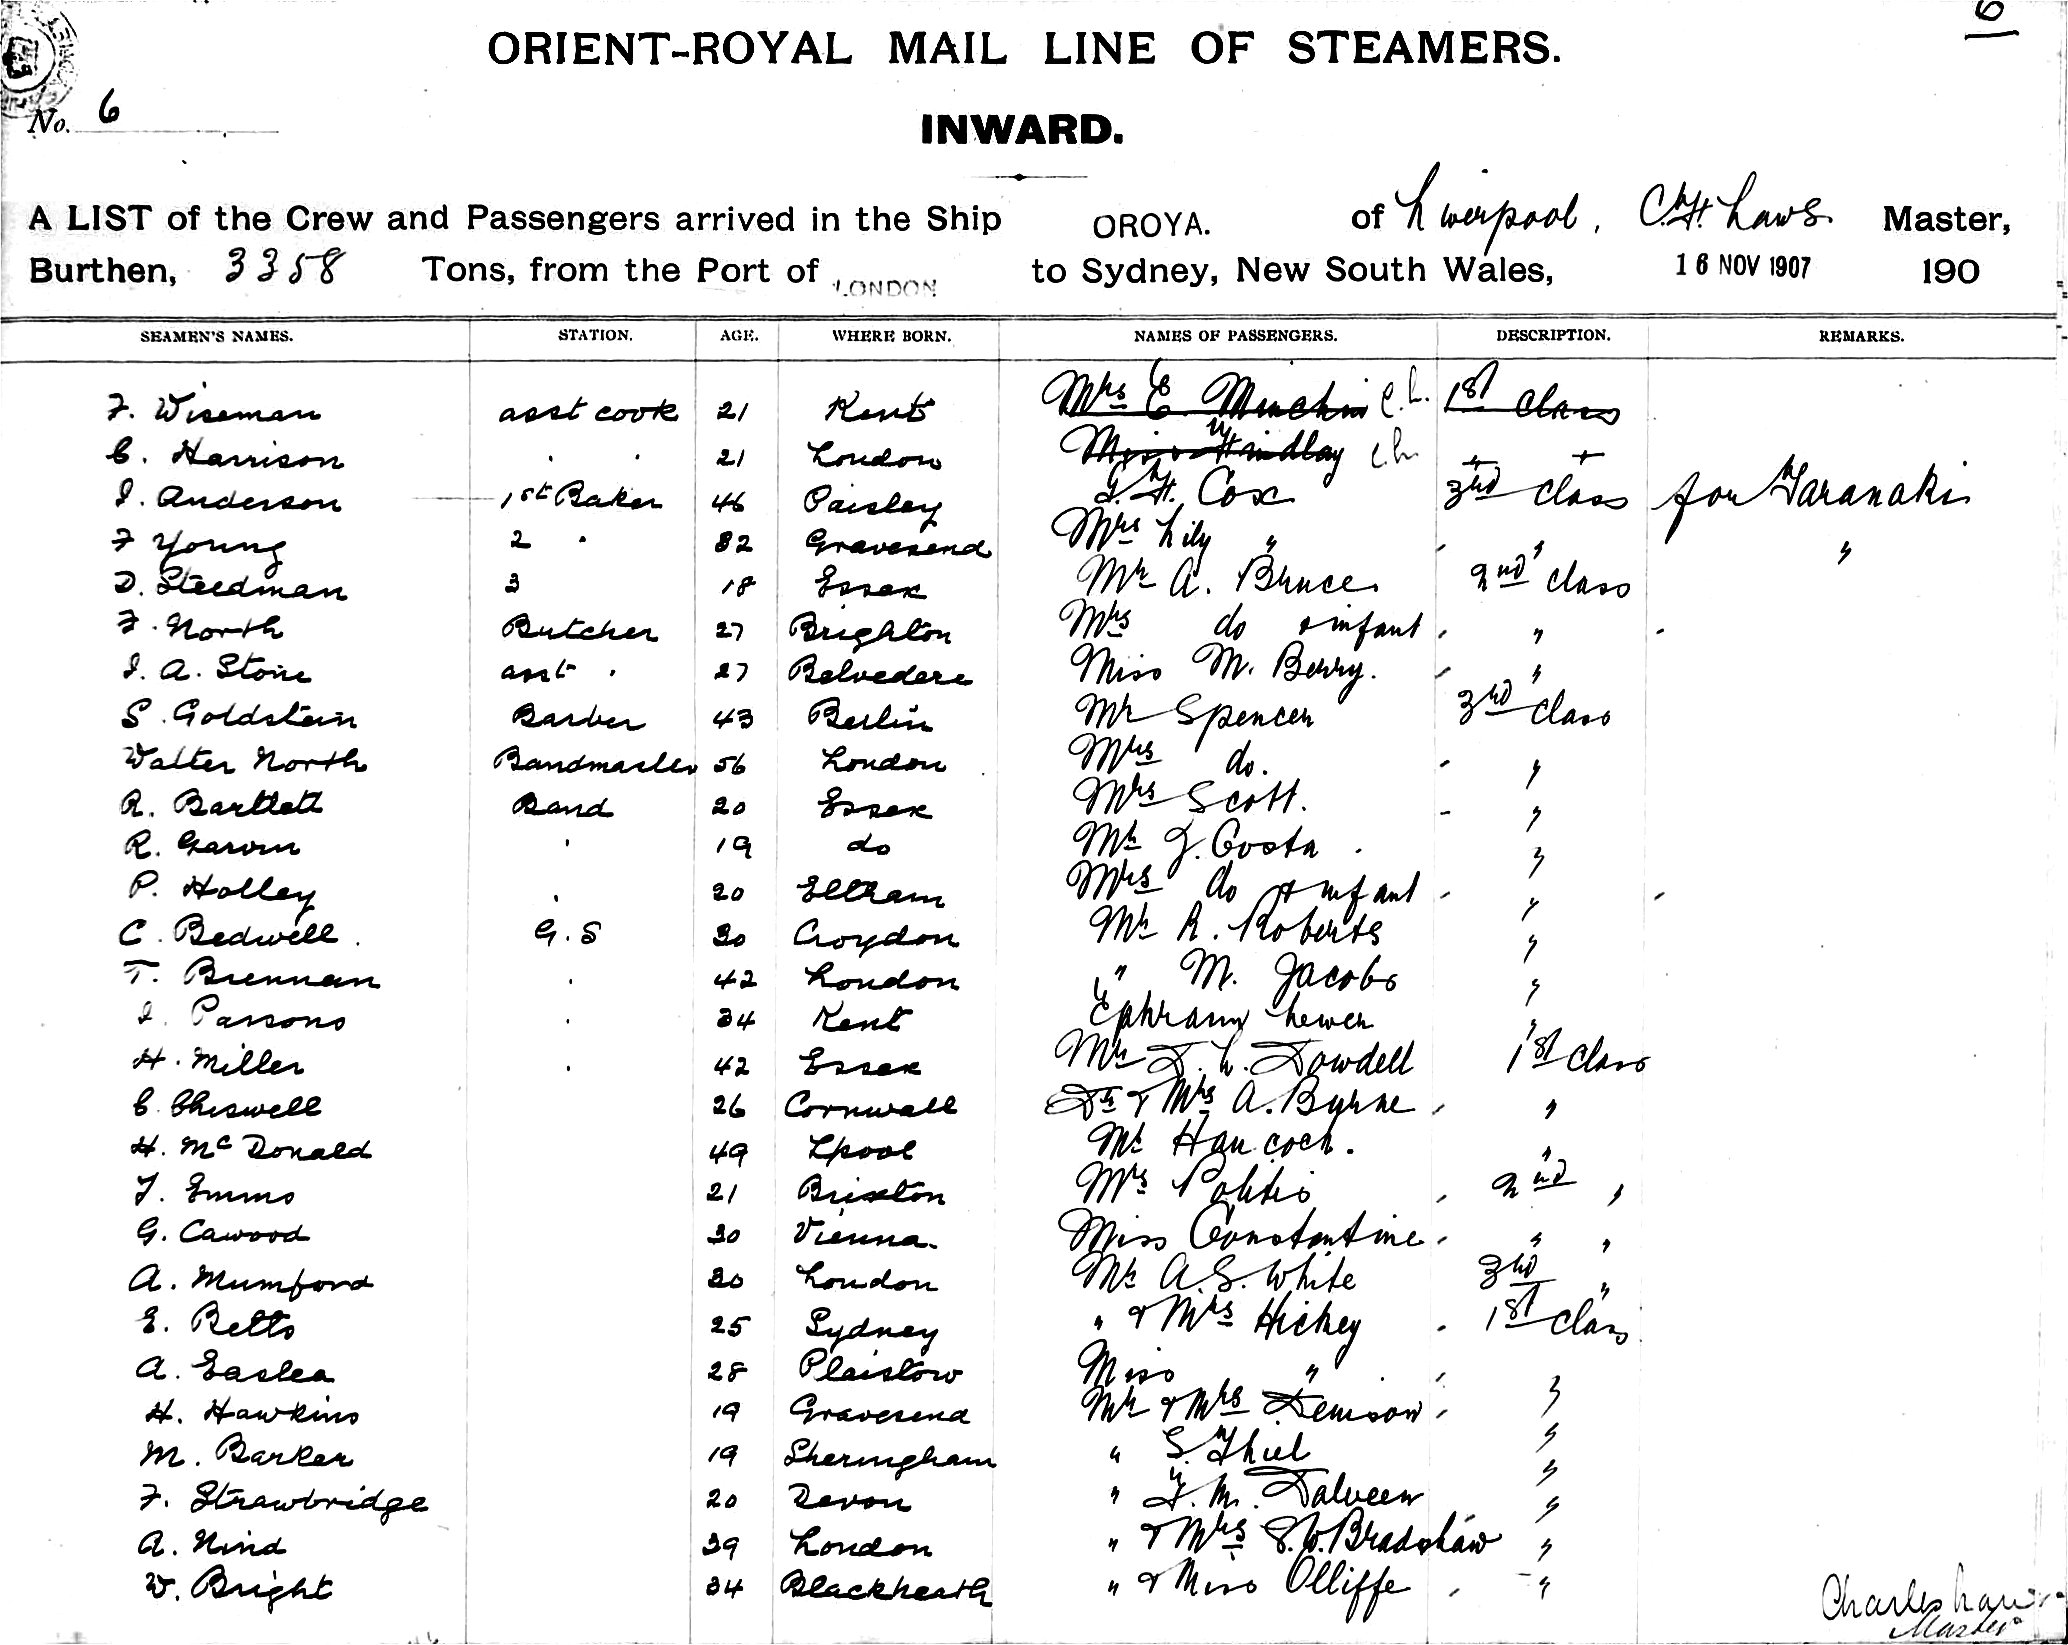 6
ORIENT-ROYAL MAIL LINE OF STEAMERS.
No. 6
INWARD.
A LIST of the Crew and Passengers arrived in the Ship OROYA. of Liverpool, Laws Master,
Burthen, 3358 Tons, from the Port of LONDON to Sydney, New South Wales, 16 NOV 1907 190
SEAMEN'S NAMES. STATION. AGE. WHERE BORN. NAMES OF PASSENGERS. DESCRIPTION. REMARKS.
F. Wiseman asst cook 21 Kent Mrs E. Minchin 1st class
C. Harrison " " 21 London Miss Hindlay
J. Anderson 1st Baker 46 Paisley Cox 3rd class for Taranaki
F Young 2 " 32 Gravesend Mrs Lily " " "
D. Steedman 3 18 Essex Mr A. Bruce 2nd class
F. North Butcher 27 Brighton Mrs do & infant "
J. A. Stone asst " 27 Belvedere Miss M. Berry. "
S. Goldstein Barber 43 Berlin Mr Spencer 3rd class
Walter North Bandmaster 56 London Mrs do. "
R. Bartlett Band 20 Essex Mrs Scott. "
R. Garvin " 19 do Mr J. Costa "
P. Holley " 20 Eltham Mrs do & infant "
C. Bedwell G.S 30 Croydon Mr R. Roberts "
T. Brennan " 42 London " M. Jacobs "
J. Parsons " 34 Kent Ephraim Lewer "
H. Miller " 42 Essex Mr D. L. Dowdell 1st class
C. Chiswell 26 Cornwall Dr & Mrs A. Byrne "
H. McDonald 49 Lpool Mr Hancock. "
J. Emms 21 Brixton Mrs Politis 2nd "
G. Cawood 30 Vienna. Miss Constantine " "
A. Mumford 20 London Mr A.S. White 3rd "
E. Betts 25 Sydney " & Mrs Hickey 1st class
A. Easlea 28 Plaistow Miss " "
H. Hawkins 19 Gravesend Mr & Mrs Denison "
M. Barker 19 Sheringham " S. Thiel "
F. Strawbridge 20 Devon " F. M. Dalveen "
A. Nind 39 London " & Mrs S.W. Bradshaw "
W. Bright 34 Blackheath " & Miss Olliffe "
Charles Laws
Master